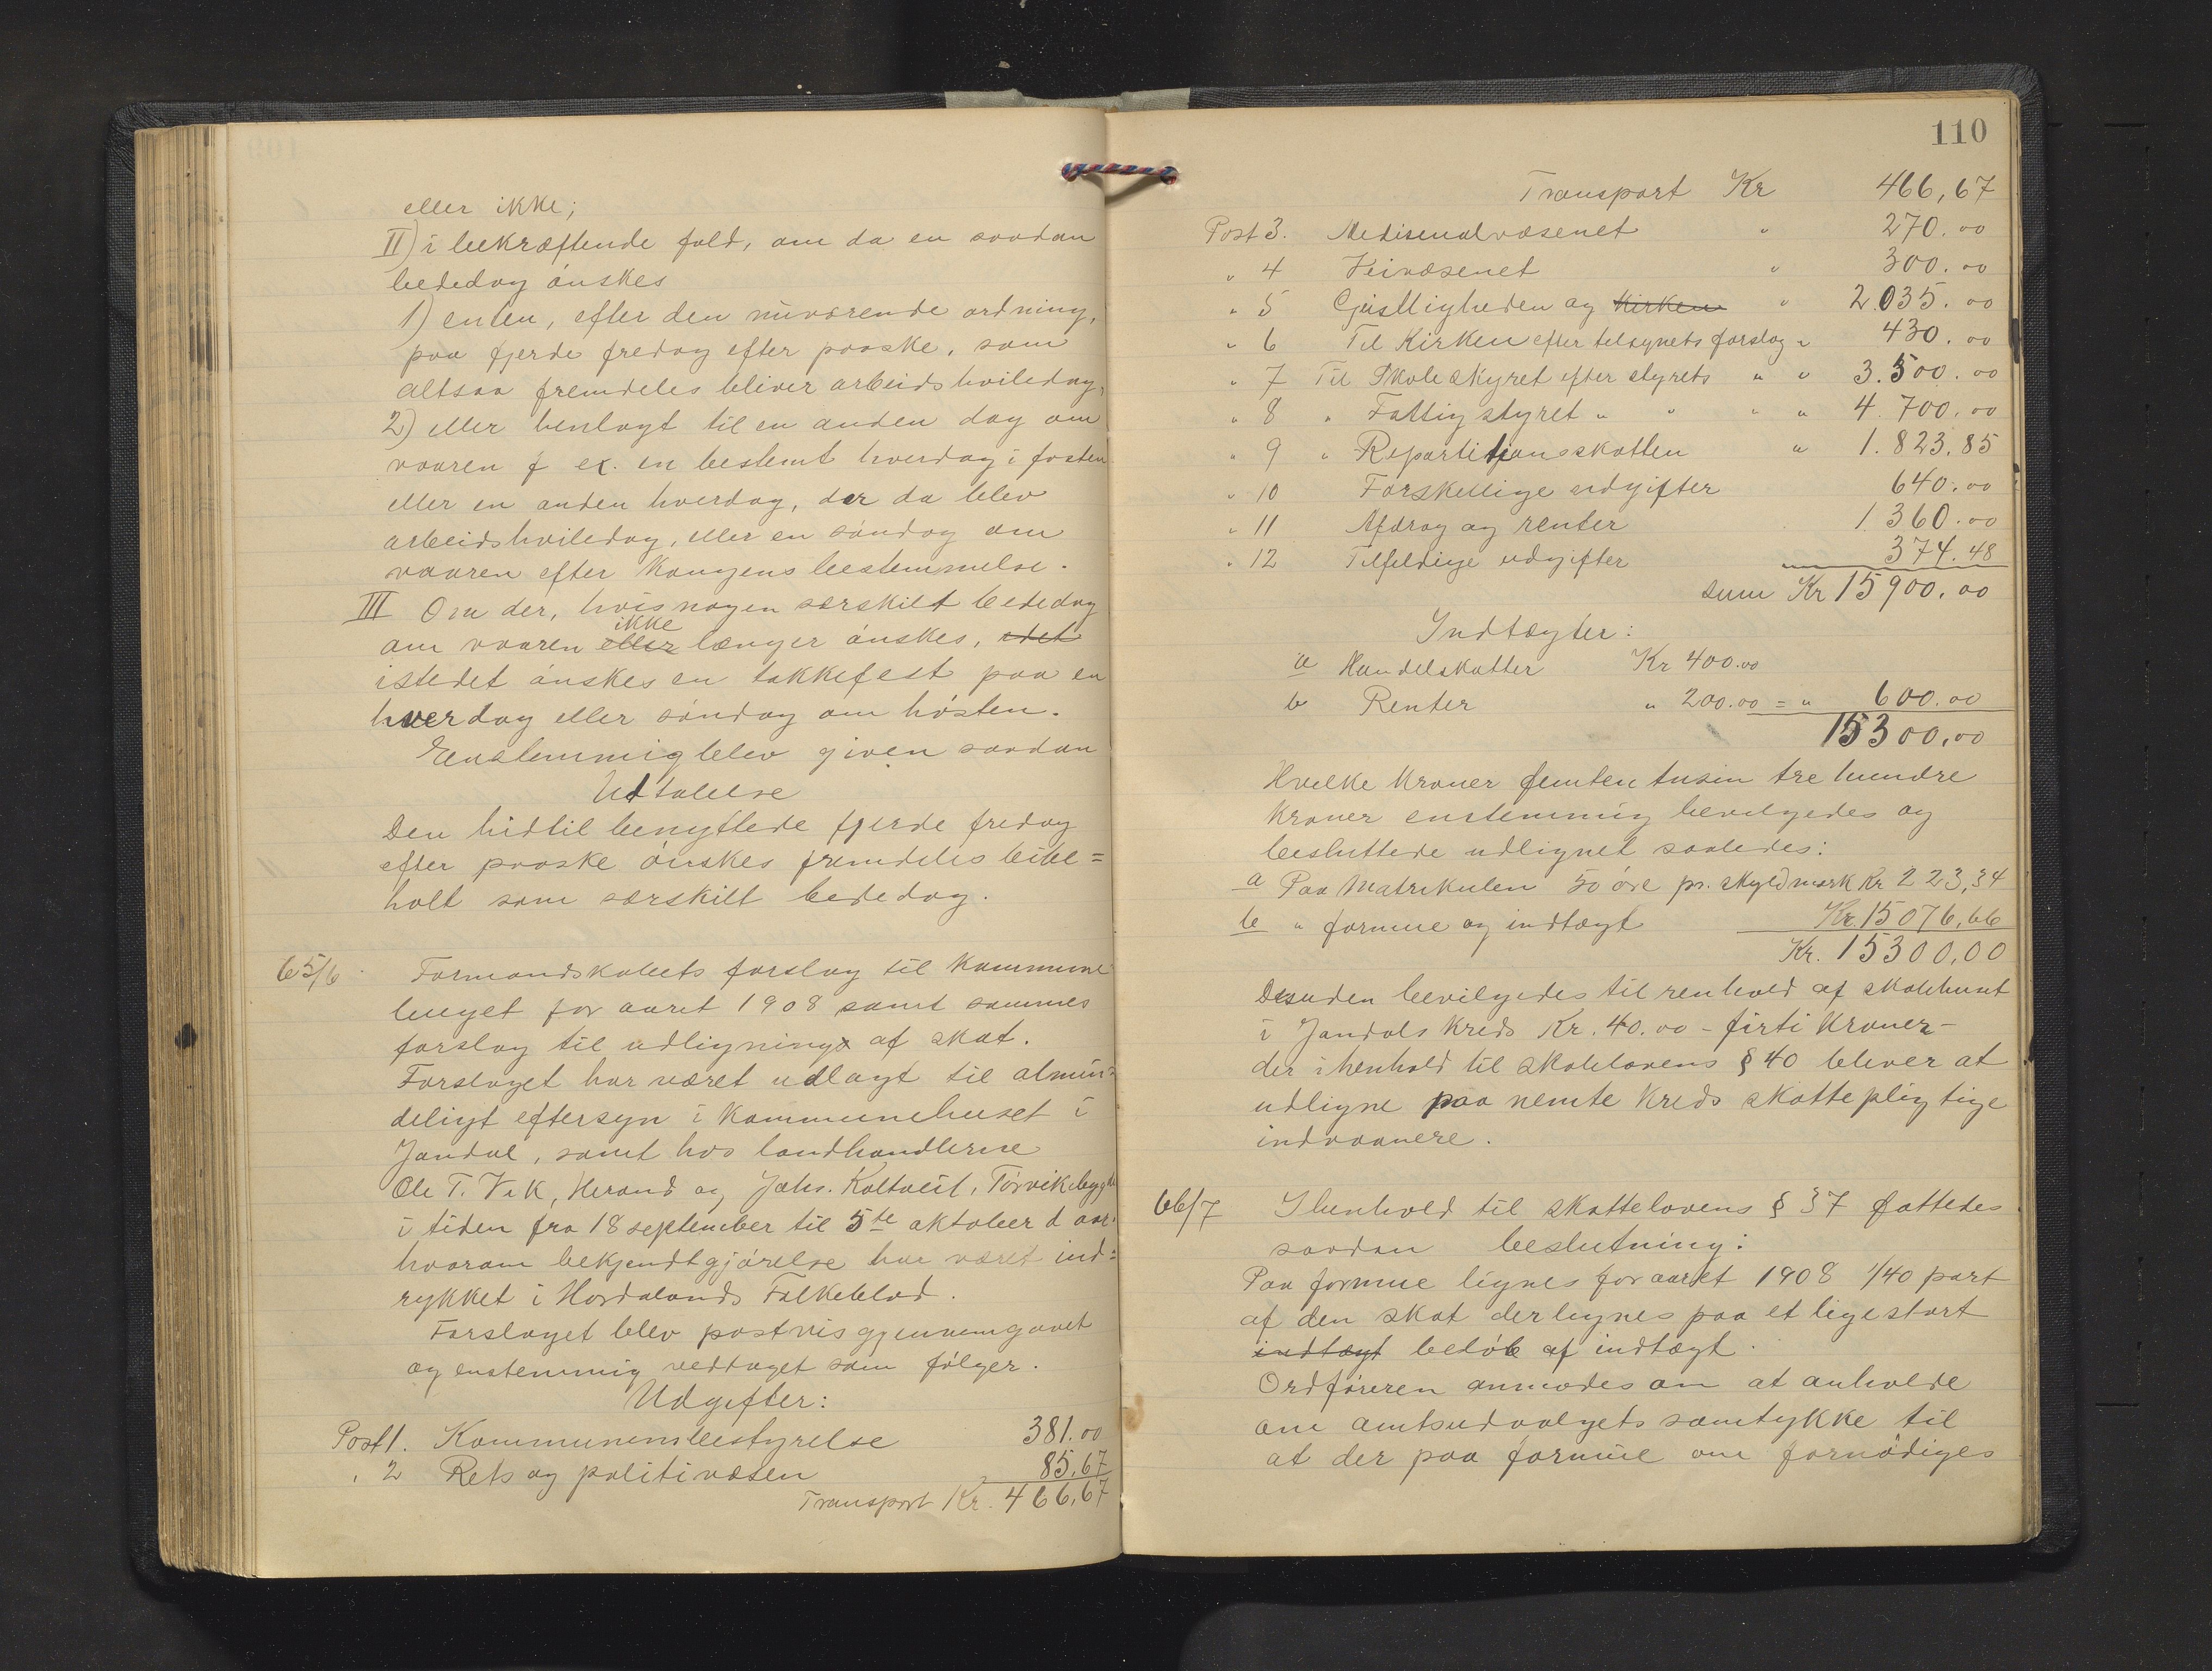 eller ikke;
II) i bekræftende fald, om da en saadan
bededag ønskes
1) enten, efter den nuværende ordning,
paa fjerde fredag efter paaske, som
altsaa fremdeles bliver arbeidshviledag,
2) eller henlagt til en anden dag om
vaaren f ex. en bestemt hverdag i fasten
eller en anden hverdag, der da blev
arbeidshviledag, eller en søndag om
vaaren efter Kongens bestemmelse.
III Om der, hvis nogen særskilt bededag
ikke
om vaaren eller længer ønskes, idet
istedet ønskes en takkefest paa en
hverdag eller søndag om høsten.
Enstemmig blev given saadan
Udtalelse
Den hidtil benyttede fjerde fredag
efter paaske ønskes fremdeles bibe=
holt som særskilt bededag.
65/6 Formandskabets forslag til kommune
buget for aaret 1908 samt sammes
forslag til udligning af skat.
Forslaget har været udlagt til almin=
deligt eftersyn i Kommunehuset i
Jondal, samt hos landhandlerne
Ole T. Vik, Herand og Johs. Koltveit, Torvikbygd
i tiden fra 18 september til 5te oktober d aar.
hvorom bekjendtgjørelse har været ind=
rykket i Hordalands Folkeblad.
Forslaget blev postvis gjennemgaaet
og enstemmig vedtaget som følger.
Udgifter:
Post 1. Kommunens bestyrelse 381.00
" 2 Rets og politivæsen 85,67
Transport Kr. 466,67
110
Transport Kr 466,67
Post 3. Medisinalvæsenet " 270.00
" 4 Veivæsenet " 300.00
" 5 Geistligheden og Kirken " 2.035.00
" 6 Til Kirken efter tilsynets forslag " 430.00
" 7 Til Skolestyret efter styrets " " 3.500.00
" 8 " Fattigstyret " " " " 4.700.00
" 9 " Repartitionsskatten " 1.823.85
" 10 Forskellige udgifter 640.00
" 11 Afdrag og renter 1.360.00
" 12 Tilfeldige udgifter 374.48
sum Kr 15900.00
Indtægter:
a Handelskatter Kr 400.00
b Renter " 200.00 = " 600.00
15300,00
Hvilke kroner femten tusin tre hundre
kroner enstemmig bevilgedes og
besluttede udlignet saaledes:
a Paa Matrikulen 50 øre pr. skyldmark Kr 223,34
b " formue og indtægt Kr. 15076,66
Kr. 15300,00
Desuden bevilgedes til renhold af skolehuset
i Jondals kreds Kr. 40.00 - firti kroner -
der i henhold til skolelovens § 40 bliver at
udligne paa nemte kreds skattepligtige
indvaanere.
66/7 I henhold til skattelovens § 37 fattedes
saadan beslutning:
Paa formue lignes for aaret 1908 1/40 part
af den skat der lignes paa et ligestort
indtægt beløb af indtægt.
Ordføreren anmodes om at anholde
om amtsudvalgets samtykke til
at der paa formue om fornødiges